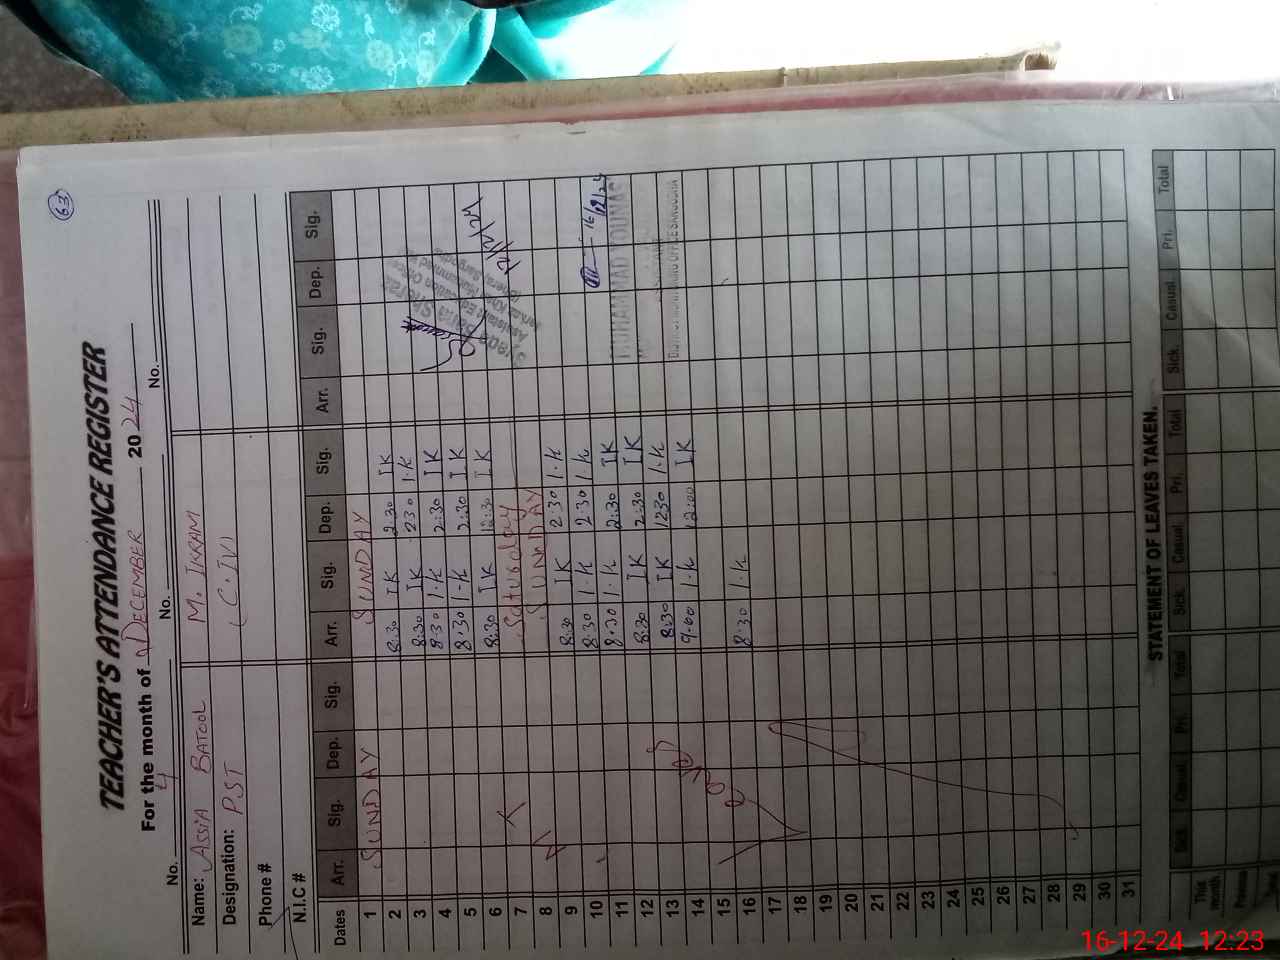 63
TEACHER'S ATTENDANCE REGISTER
For the month of DECEMBER 2024
No. 4 No. No.
Name: ASSIA BATOOL M. IKRAM
Designation: P.S.T (C.IV)
Phone #
N.I.C #
Dates Arr. Sig. Dep. Sig. Arr. Sig. Dep. Sig. Arr. Sig. Dep. Sig.
1 SUNDAY SUNDAY
2 8:30 IK 2:30 IK
3 8:30 IK 2:30 I.K
4 8:30 I.K 2:30 IK
5 8:30 I.K 2:30 IK
6 8:30 IK 12:30 IK
7 Saturday
8 SUNNDAY
9 8:30 IK 2:30 I.K
10 8:30 I.K 2:30 I.K 16/12/24
11 8:30 I.K 2:30 IK MUHAMMAD YOUNAS
12 8:30 IK 2:30 IK
13 8:30 IK 1230 I.K DISTRICT MONITORING OFFICE SARGODHA
14 9:00 I.K 12:00 IK
15
16 8:30 I.K
17
18
19
20
21
22
23
24
25
26
27
28
29
30
31
Assistant Education Officer
STATEMENT OF LEAVES TAKEN.
Sick. Casual. Pri. Total Sick. Casual. Pri. Total Sick. Casual. Pri. Total
This month
Previous
16-12-24 12:23